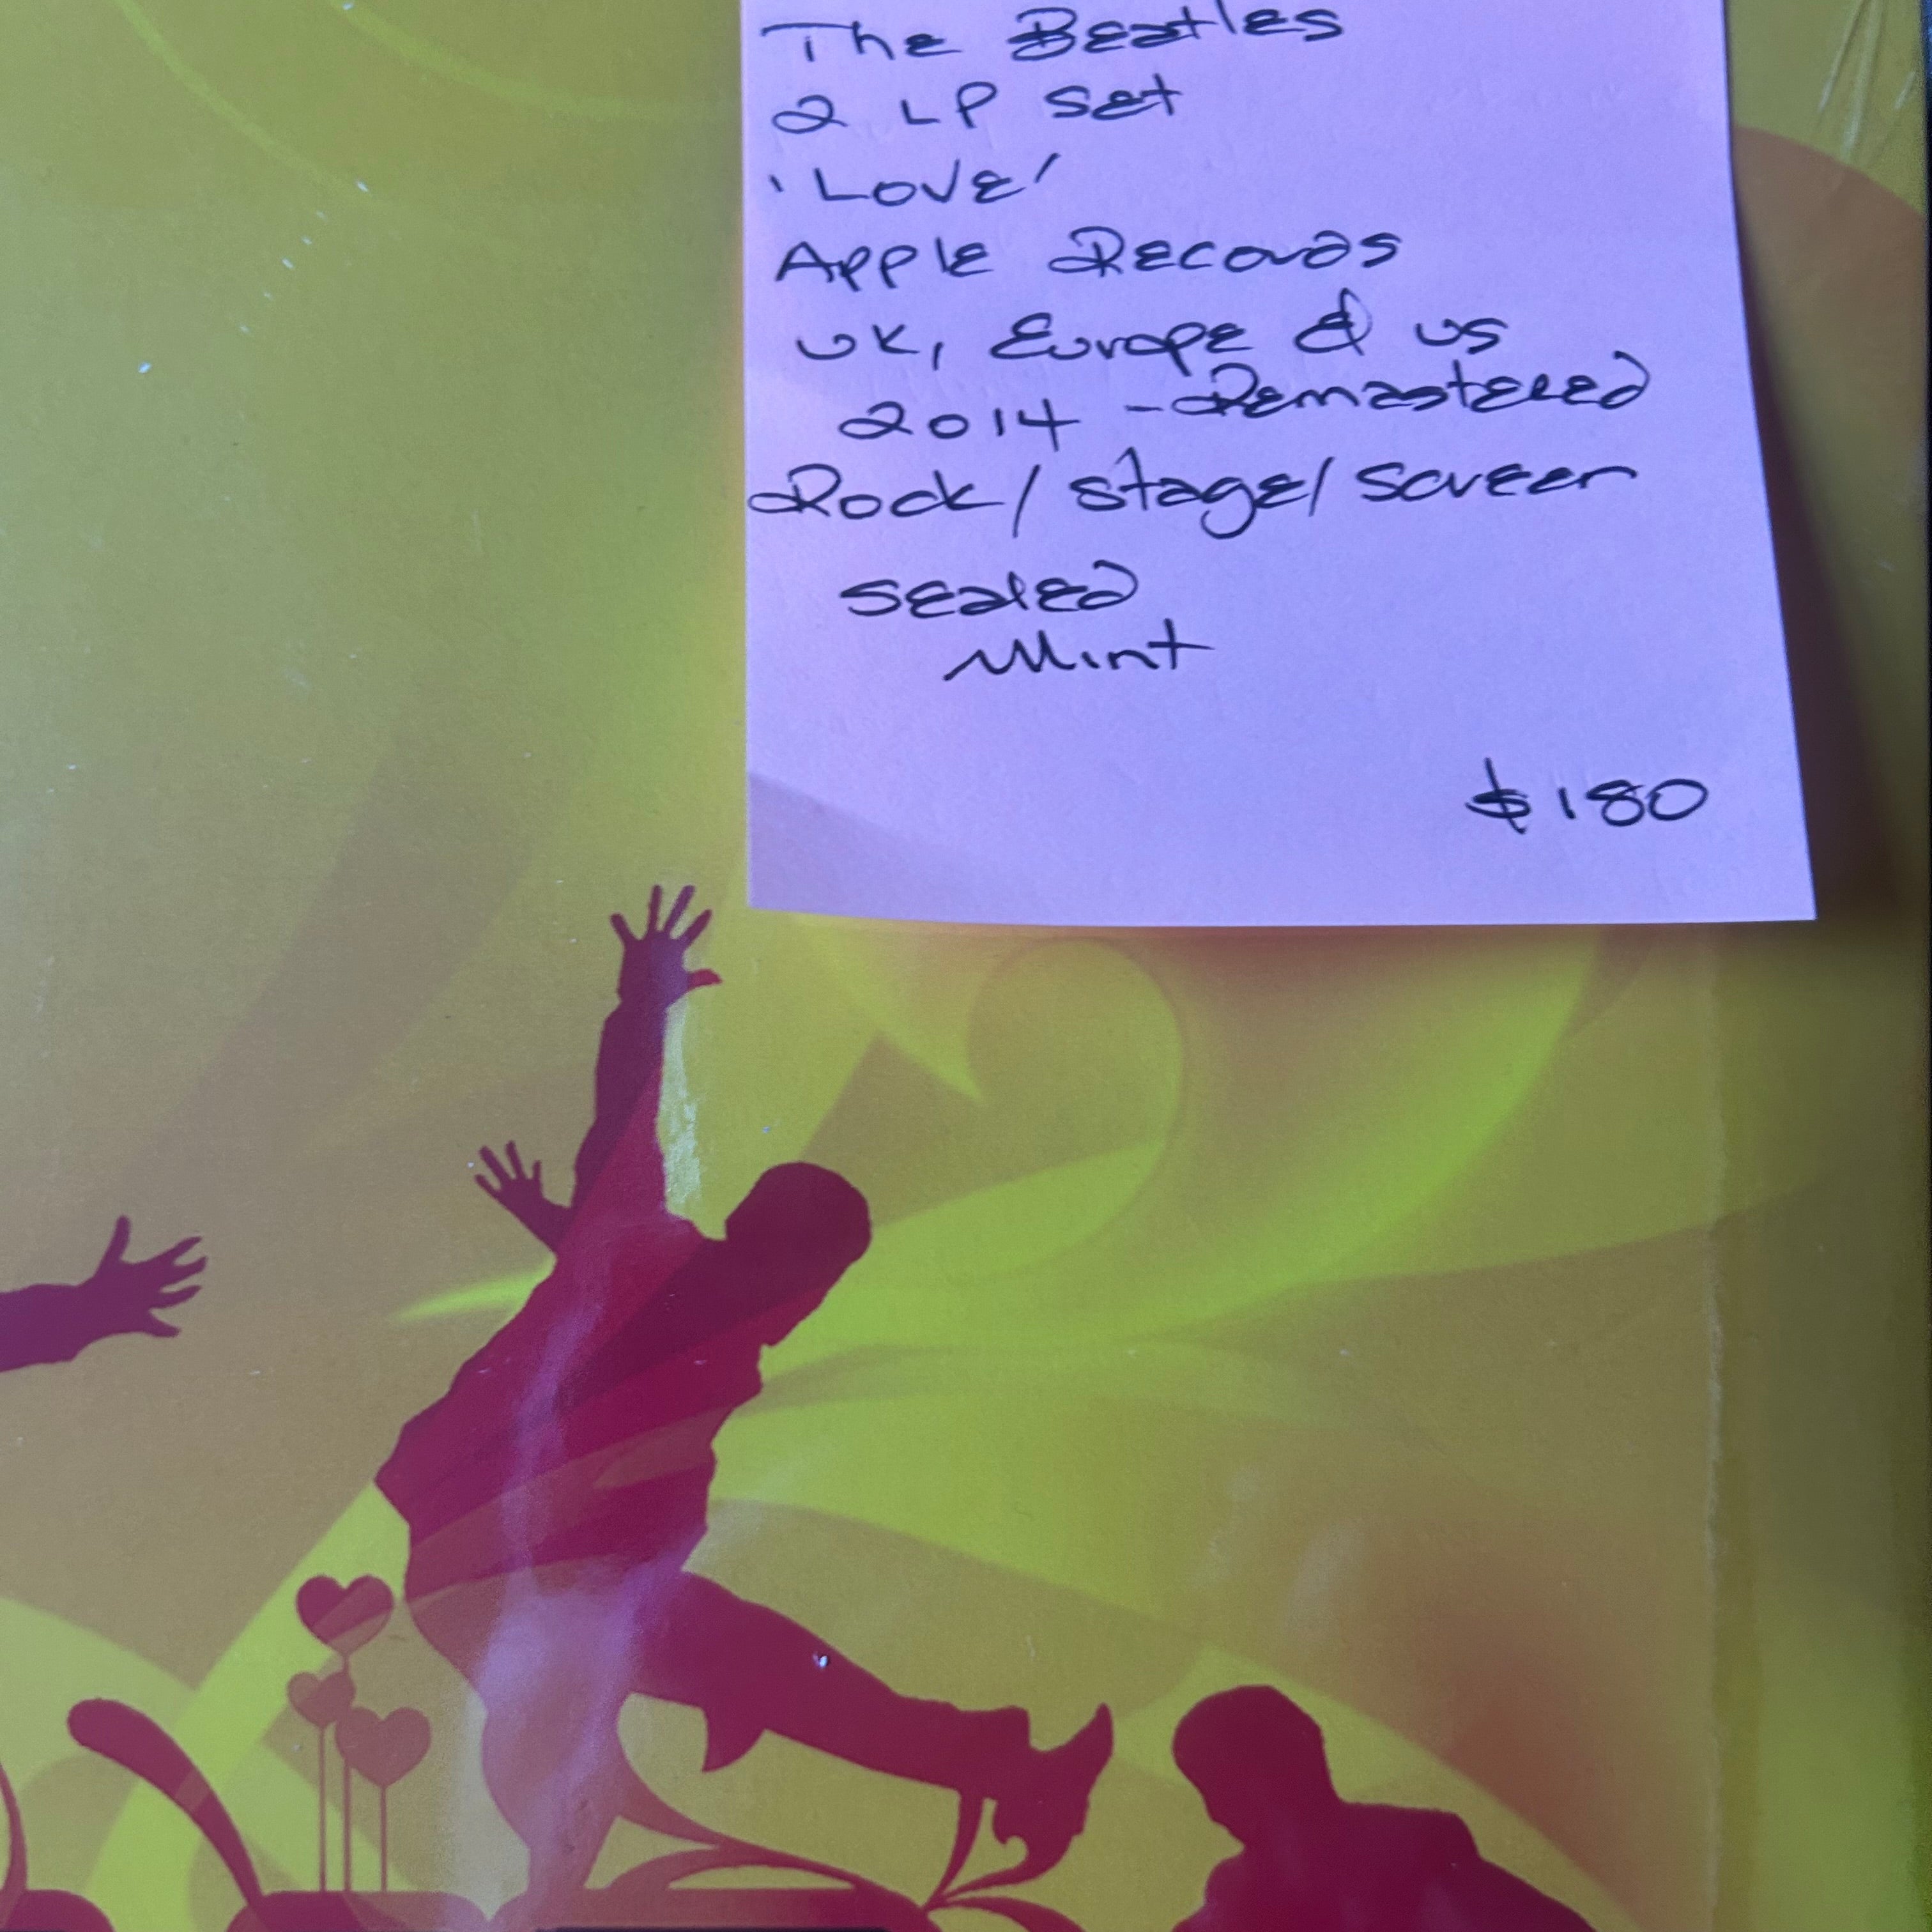 The Beatles
2 LP Set
'LOVE'
Apple Records
UK, Europe & US
2014 - Remastered
Rock / Stage / Screen
Sealed
Mint
$180